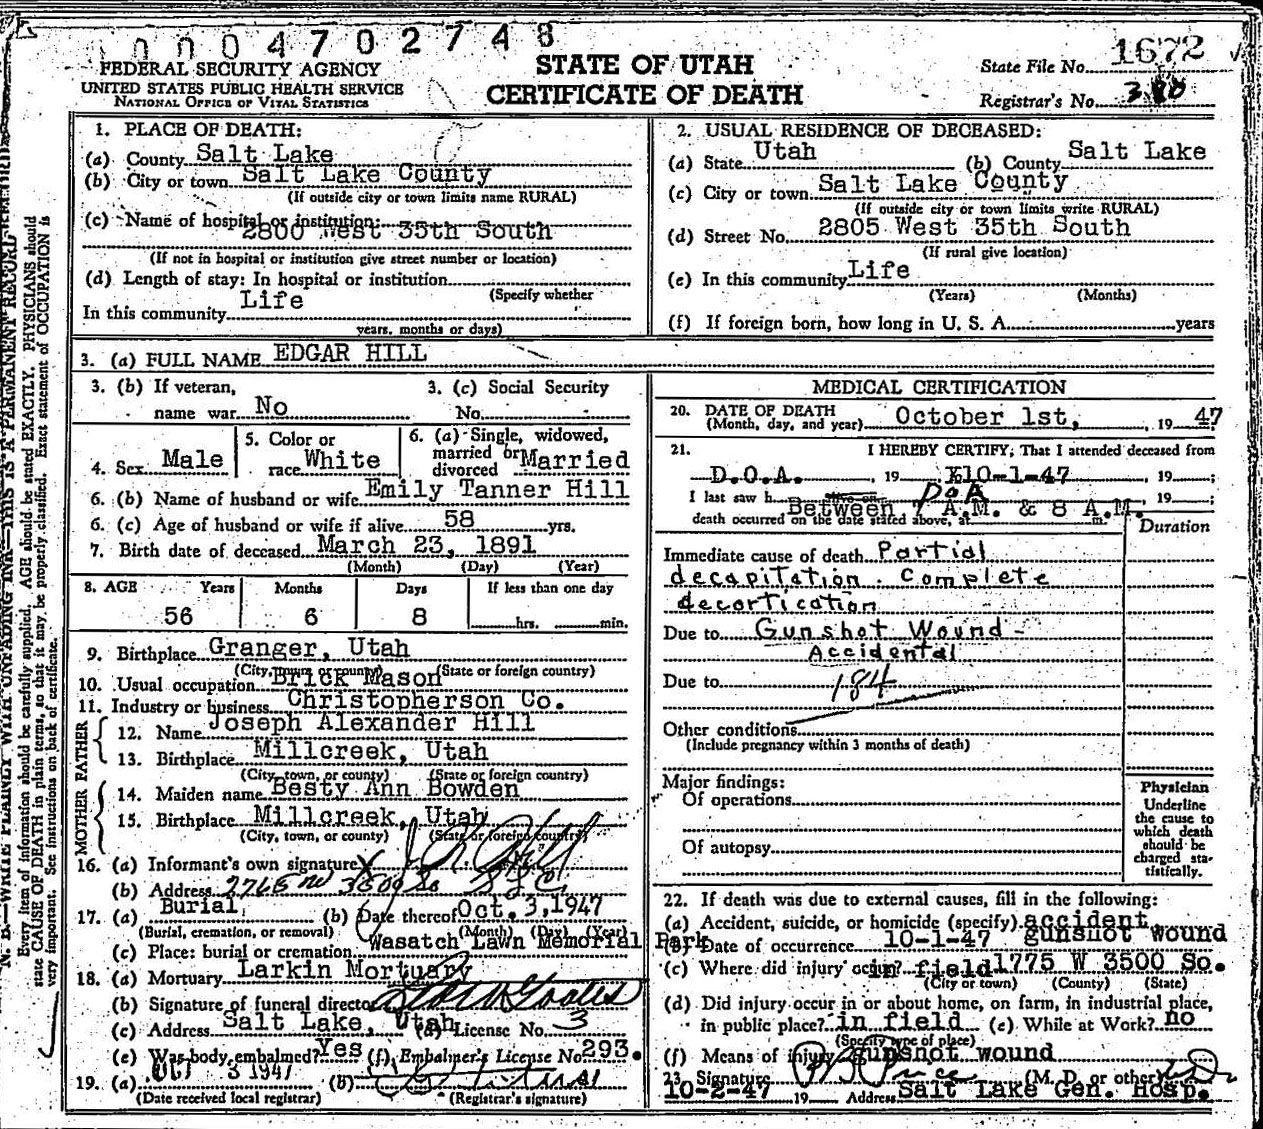 0004702748
FEDERAL SECURITY AGENCY
UNITED STATES PUBLIC HEALTH SERVICE
NATIONAL OFFICE OF VITAL STATISTICS
STATE OF UTAH
CERTIFICATE OF DEATH
State File No. 1672
Registrar's No. 380
N. B.—WRITE PLAINLY WITH UNFADING INK—THIS IS A PERMANENT RECORD
Every item of information should be carefully supplied. AGE should be stated EXACTLY. PHYSICIANS should
state CAUSE OF DEATH in plain terms, so that it may be properly classified. Exact statement of OCCUPATION is
very important. See instructions on back of certificate.
1. PLACE OF DEATH:
(a) County Salt Lake
(b) City or town Salt Lake County
(If outside city or town limits name RURAL)
(c) Name of hospital or institution:
2800 West 35th South
(If not in hospital or institution give street number or location)
(d) Length of stay: In hospital or institution
(Specify whether
In this community Life
years, months or days)
2. USUAL RESIDENCE OF DECEASED:
(a) State Utah (b) County Salt Lake
(c) City or town Salt Lake County
(If outside city or town limits write RURAL)
(d) Street No. 2805 West 35th South
(If rural give location)
(e) In this community Life
(Years) (Months)
(f) If foreign born, how long in U. S. A. years
3. (a) FULL NAME EDGAR HILL
3. (b) If veteran,
name war No
3. (c) Social Security
No.
4. Sex Male
5. Color or
race White
6. (a) Single, widowed,
married or
divorced Married
6. (b) Name of husband or wife Emily Tanner Hill
6. (c) Age of husband or wife if alive 58 yrs.
7. Birth date of deceased March 23, 1891
(Month) (Day) (Year)
8. AGE Years Months Days If less than one day
56 6 8 hrs. min.
9. Birthplace Granger, Utah
(City, town or county) (State or foreign country)
10. Usual occupation Brick Mason
11. Industry or business Christopherson Co.
FATHER
12. Name Joseph Alexander Hill
13. Birthplace Millcreek, Utah
(City, town, or county) (State or foreign country)
MOTHER
14. Maiden name Besty Ann Bowden
15. Birthplace Millcreek, Utah
(City, town, or county) (State or foreign country)
16. (a) Informant's own signature X Hill
(b) Address 3500 So SLC
17. (a) Burial, (b) Date thereof Oct. 3, 1947
(Burial, cremation, or removal) (Month) (Day) (Year)
(c) Place: burial or cremation Wasatch Lawn Memorial Park
18. (a) Mortuary Larkin Mortuary
(b) Signature of funeral director
(c) Address Salt Lake, Utah (d) License No. 3
(e) Was body embalmed? Yes (f) Embalmer's License No. 293.
19. (a) OCT 3 1947 (b)
(Date received local registrar) (Registrar's signature)
MEDICAL CERTIFICATION
20. DATE OF DEATH
(Month, day, and year) October 1st, , 1947
21. I HEREBY CERTIFY; That I attended deceased from
D.O.A. , 19 10-1-47 19 ;
I last saw h alive on DOA , 19 ;
death occurred on the date stated above, at Between 7 A.M. & 8 A.M. m.
Duration
Immediate cause of death Partial
decapitation. Complete
decortication
Due to Gunshot Wound -
Accidental
Due to 184
Other conditions
(Include pregnancy within 3 months of death)
Major findings:
Of operations
Of autopsy
Physician
Underline
the cause to
which death
should be
charged sta-
tistically.
22. If death was due to external causes, fill in the following:
(a) Accident, suicide, or homicide (specify) accident
(b) Date of occurrence 10-1-47 gunshot wound
(c) Where did injury occur? in field 1775 W 3500 So.
(City or town) (County) (State)
(d) Did injury occur in or about home, on farm, in industrial place,
in public place? in field (e) While at Work? no
(Specify type of place)
(f) Means of injury gunshot wound
23. Signature Price (M. D. or other) MD
10-2-47 19 Address Salt Lake Gen. Hosp.